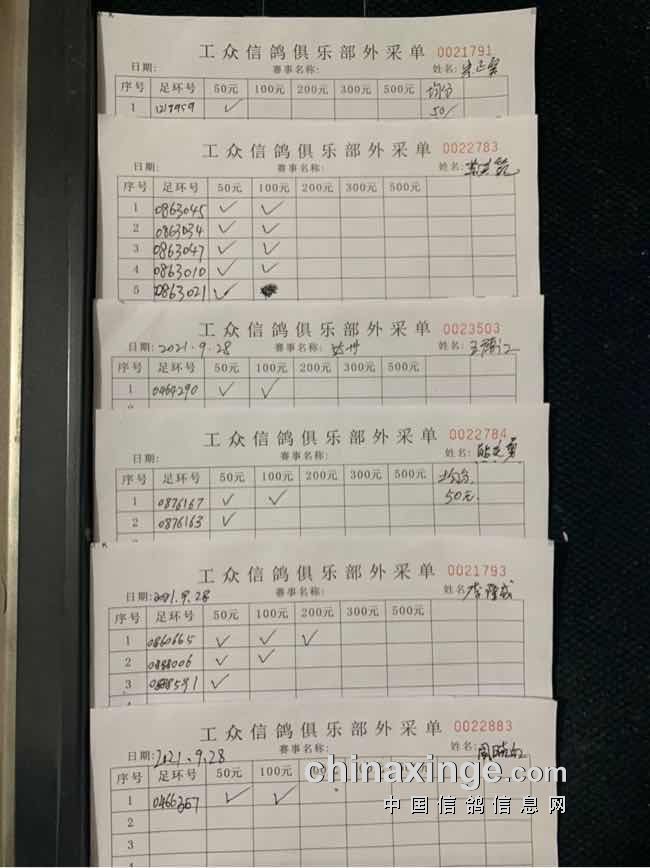 工众信鸽俱乐部外采单 0021791
日期: 赛事名称: 姓名:
序号 足环号 50元 100元 200元 300元 500元 均分
1 1219959 ✓ 50/
工众信鸽俱乐部外采单 0022783
日期: 赛事名称: 姓名:
序号 足环号 50元 100元 200元 300元 500元
1 0863045 ✓ ✓
2 0863034 ✓ ✓
3 0863047 ✓ ✓
4 0863010 ✓ ✓
5 0863021 ✓
工众信鸽俱乐部外采单 0023503
日期: 2021.9.28 赛事名称: 达州 姓名:
序号 足环号 50元 100元 200元 300元 500元
1 0464290 ✓ ✓
工众信鸽俱乐部外采单 0022784
日期: 赛事名称: 姓名:
序号 足环号 50元 100元 200元 300元 500元 均分
1 0876167 ✓ ✓ 50元.
2 0876163 ✓
工众信鸽俱乐部外采单 0021793
日期: 2021.9.28 赛事名称: 姓名:
序号 足环号 50元 100元 200元 300元 500元
1 0860665 ✓ ✓ ✓
2 ✓ ✓
3 ✓
工众信鸽俱乐部外采单 0022883
日期: 2021.9.28 赛事名称: 姓名: 周晓红
序号 足环号 50元 100元
1 0466367 ✓ ✓
2
3
4
chinaxinge.com
中国信鸽信息网